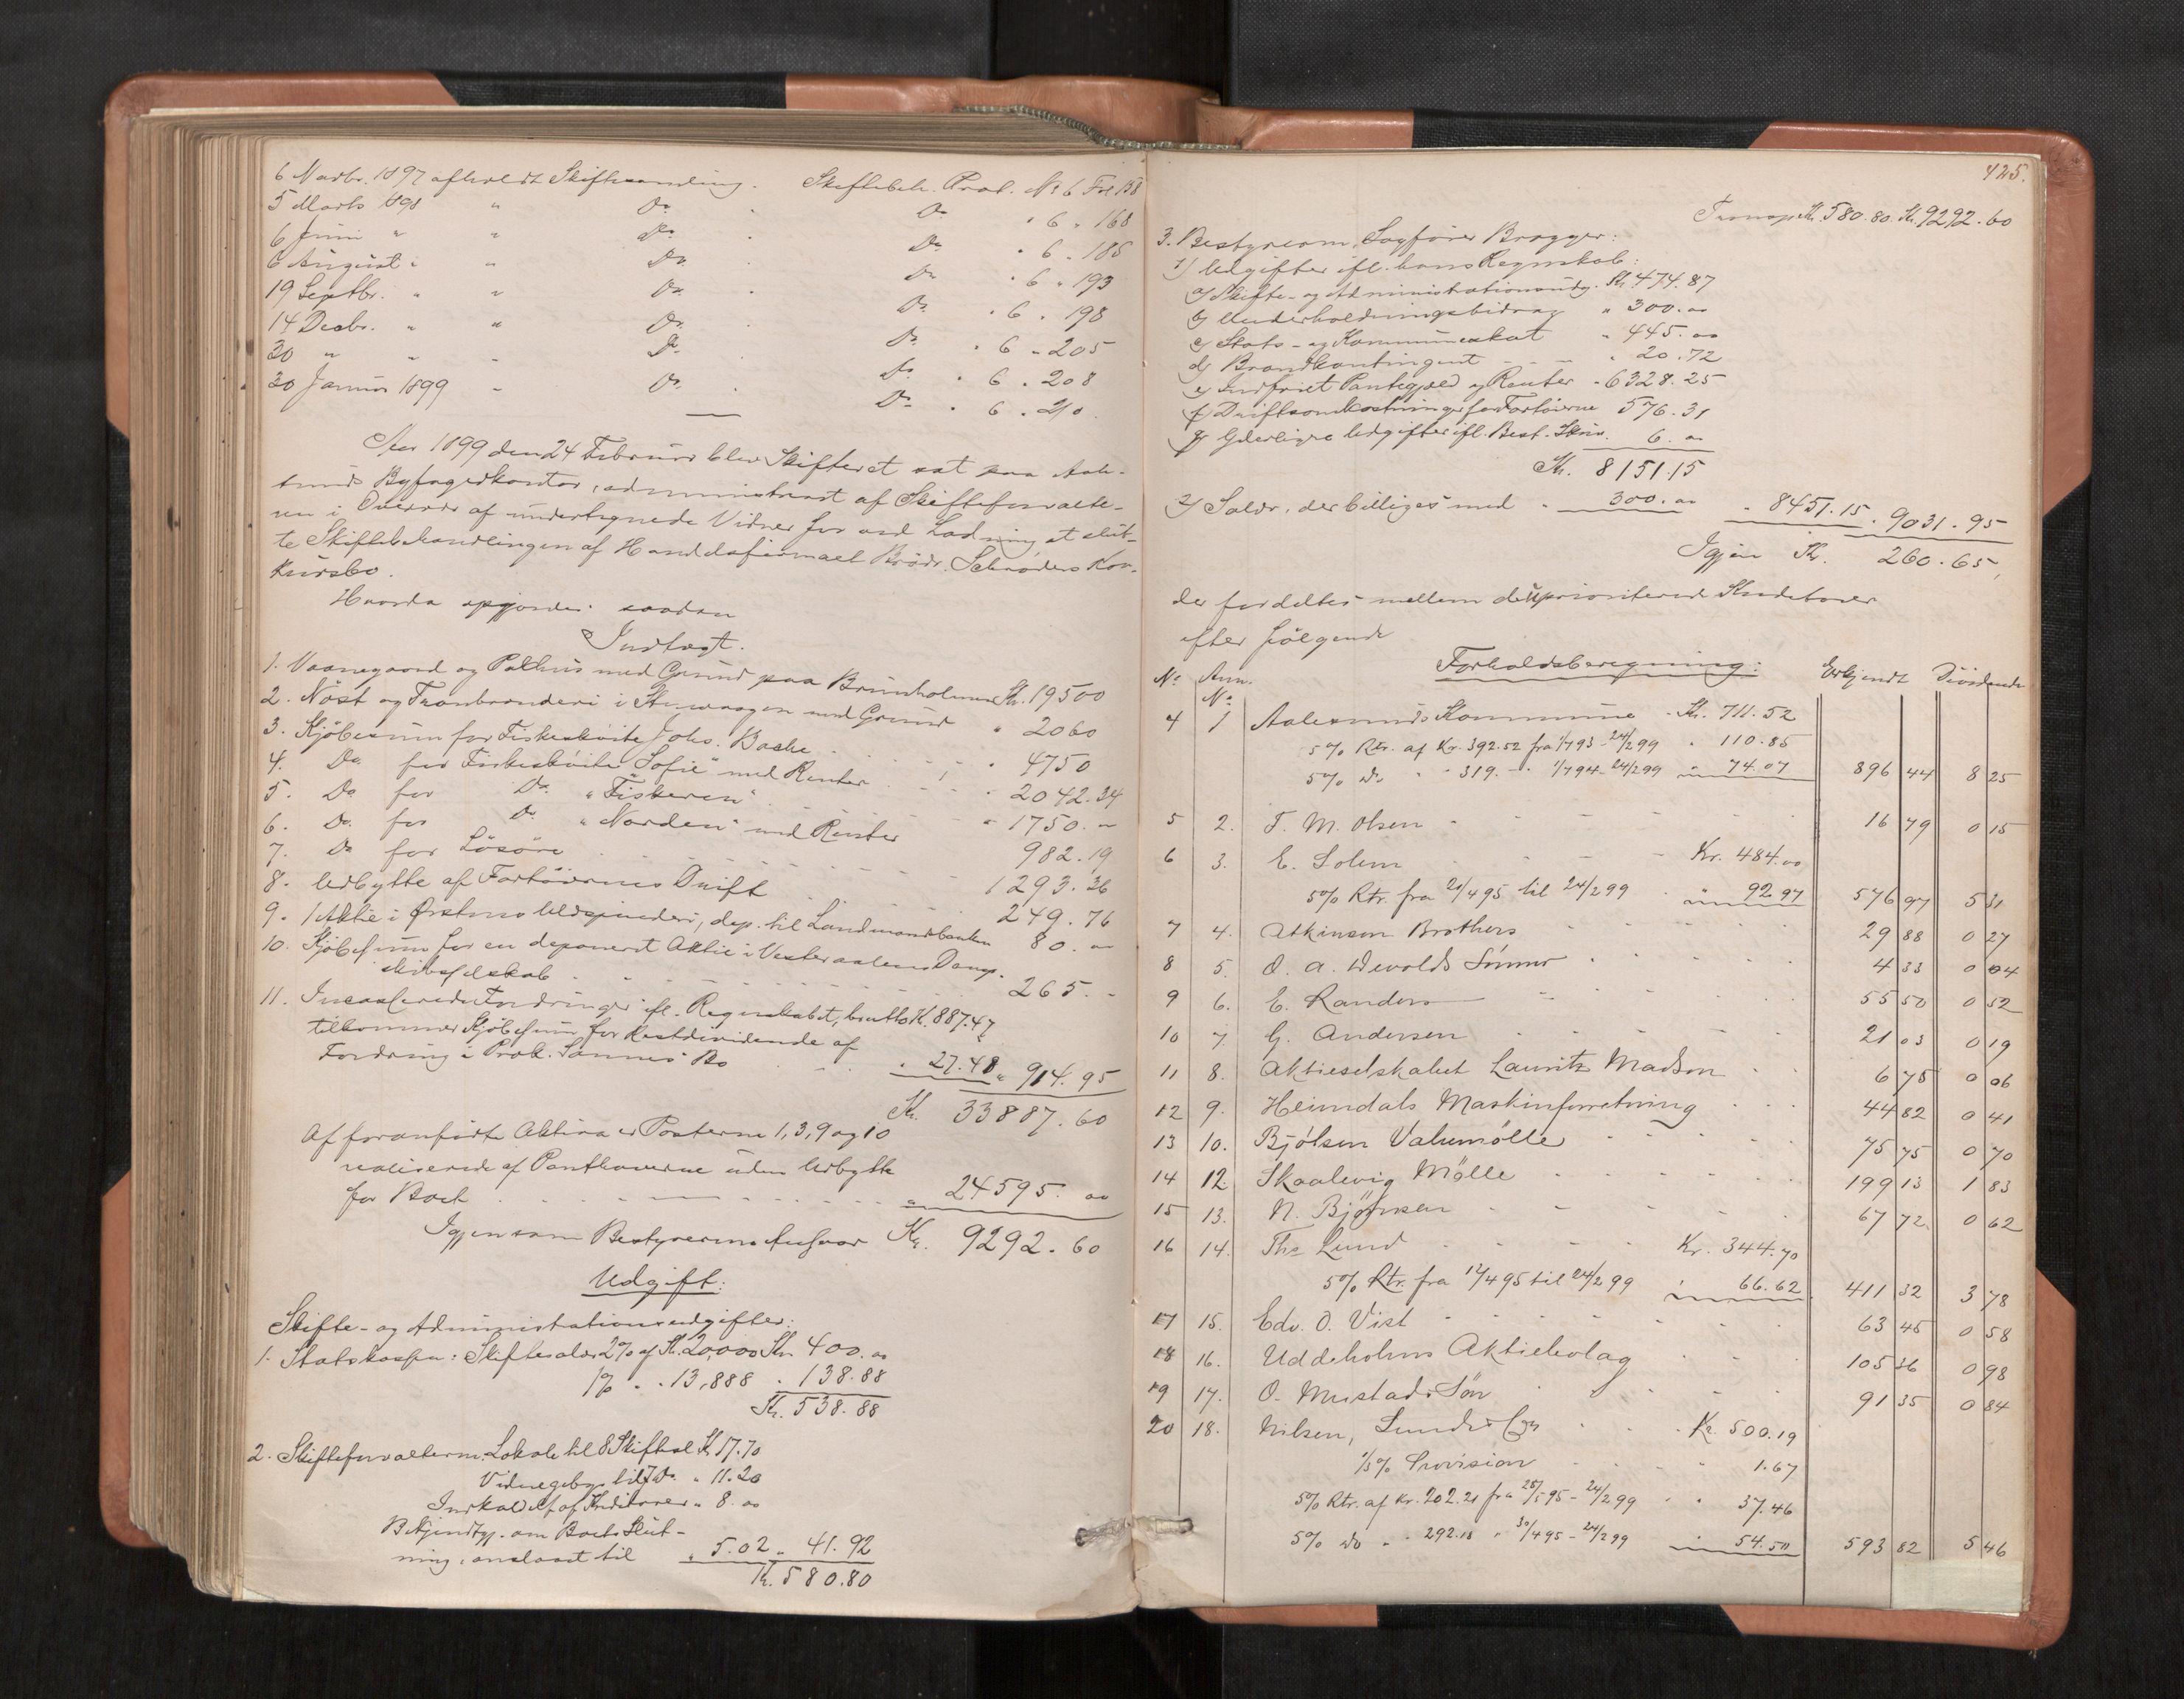 6 Novbr. 1897 afholdt Skiftesamling. Skiftebeh. Prot. No 6 Fol 158
5 Marts 1898 " Do. Do " 6 " 168
6 Juni " " Do. Do. " 6 . 185
6 August " " Do. Do " 6 " 193
19 Septbr. " " Do. Do. " 6 . 198
14 Decbr. " " Do. Do. " 6 " 205
30 " " " Do. Do. " 6 . 208
30 Januar 1899 " Do. Do. " 6 . 210.
Aar 1899 den 24 Februar blev Skifteret sat paa Aale-
sunds Byfogedkontor, administreret af Skifteforvalte-
ren i Overvær af undertegnede Vidner for ved Lodning at slut-
te Skiftebehandlingen af Handelsfirmaet Brødr. Schrøders Kon-
kursbo.
Hvorda opgjordes saadan
Indtægt.
1. Vaanegaard og Pakhus med Grund paa Brunholmen Kr. 19500
2. Nøst og Tranbrænderi i Stenvaagen med Grund " 2060
3. Kjøbesum for Fiskeskøite Johs. Bache . " 4750
4. Do. for Fiskeskøite "Sofie" med Renter . . " 2042.34
5. Do for Do. "Fiskeren" . . . " 1750. "
6. Do. for Do. "Norden" med Renter 982.19
7. Do for Løsøre . . . . 1293.36
8. Udbytte af Fartøiernes Drift . . . 249.76
9. 1 Aktie i Ørstens Uldspinderi, dep. til Landmandsbanken 80. "
10. Kjøbesum for en deponeret Aktie i Vesteraalens Damp-
skibsselskab . . . . 265. -
11. Incasserede Fordringer ifl. Regnskabet, brutto Kr. 887.47
tilkommer Kjøbesum for Restdividende af
Fordring i Prok. Sannes Bo . . " 27.48 " 914.95
Kr. 33887.60
Af foranførte Aktiva er Posterne 1, 3, 9 og 10
realiserede af Panthaverne uden Udbytte
for Boet . . . . " 24595. 00
Igjen som Bestyrerens Ansvar Kr. 9292.60
Udgift:
Skifte- og Administrationsudgifter:
1. Statskassen: Skiftesalær 2% af Kr. 20,000 Kr. 400.00
1% " " 13,888 " 138.88
Kr. 538.88
2. Skifteforvalteren: Lokale til 8 Skiftesal. Kr. 17.70
Vidnegebyr til 7 Do. " 11.20
Indkald. af Kreditorer " 8.00
Bekjendtgj. om Boets Slut-
ning, anslaaet til " 5.02 " 41.92
Kr. 580.80
425.
Transp. Kr. 580.80. Kr. 9292.60
3. Bestyreren, Sagfører Brøgger:
1) Udgifter ifl. hans Regnskab:
a) Skifte- og Administrationsudg. Kr. 474.87
b) Underholdningsbidrag " 300.00
c) Stats- og Kommuneskat " 445.00
d) Brandkontingent - - - " 20.72
e) Indfriet Pantegjæld og Renter " 6328.25
f) Driftsomkostninger for Fartøierne 576.31
g) Yderligere Udgifter ifl. Best. Skriv. 6.00
Kr. 8151.15
2) Salær, der billiges med " 300.00 " 8451.15 " 9031.95
Igjen Kr. 260.65,
der fordeltes mellem de uprioriterede Kreditorer
efter følgende
Forholdsberegning:
No Anm. No Erkjendt Dividende
4 1 Aalesunds Kommune - Kr. 711.52
5% Rtr. af Kr. 392.52 fra 1/7 93 - 24/2 99 " 110.85
5% do " " 319. - " 1/7 94 - 24/2 99 " 74.07 896 44 8 25
5 2. T. M. Olsen . . . 16 79 0 15
6 3. E. Solem - - - Kr. 484.00
5% Rtr. fra 21/4 95 til 24/2 99 " 92 97 576 97 5 31
7 4. Atkinson Brothers . . . 29 88 0 27
8 5. O. A. Devolds Sønner . . . 4 33 0 04
9 6. E. Randers - . . . 55 50 0 52
10 7. G. Andersen . . . 21 03 0 19
11 8. Aktieselskabet Lauritz Madsen . . 6 75 0 06
12 9. Heimdals Maskinforretning . . . 44 82 0 41
13 10. Bjølsen Valsemølle . . . 75 75 0 70
14 12. Skaalevig Mølle . . . 199 13 1 83
15 13. N. Bjørnsen . . . 67 72 0 62
16 14. Ths Lund . . . Kr. 344.70
5% Rtr. fra 12/4 95 til 24/2 99 " 66.62 411 32 3 78
17 15. Edv. O. Vist . . . 63 45 0 58
18 16. Uddeholms Aktiebolag . . . 105 36 0 98
19 17. O. Mustad & Søn . . . 91 35 0 84
20 18. Nilsen, Lund & Co . . Kr. 500.19
1/3% Provision . . . 1.67
5% Rtr. af Kr. 202.21 fra 25/5 95 - 24/2 99 " " 37.46
5% do " " 292.18 " 30/4 95 - 24/2 99 " 54.50 593 82 5 46